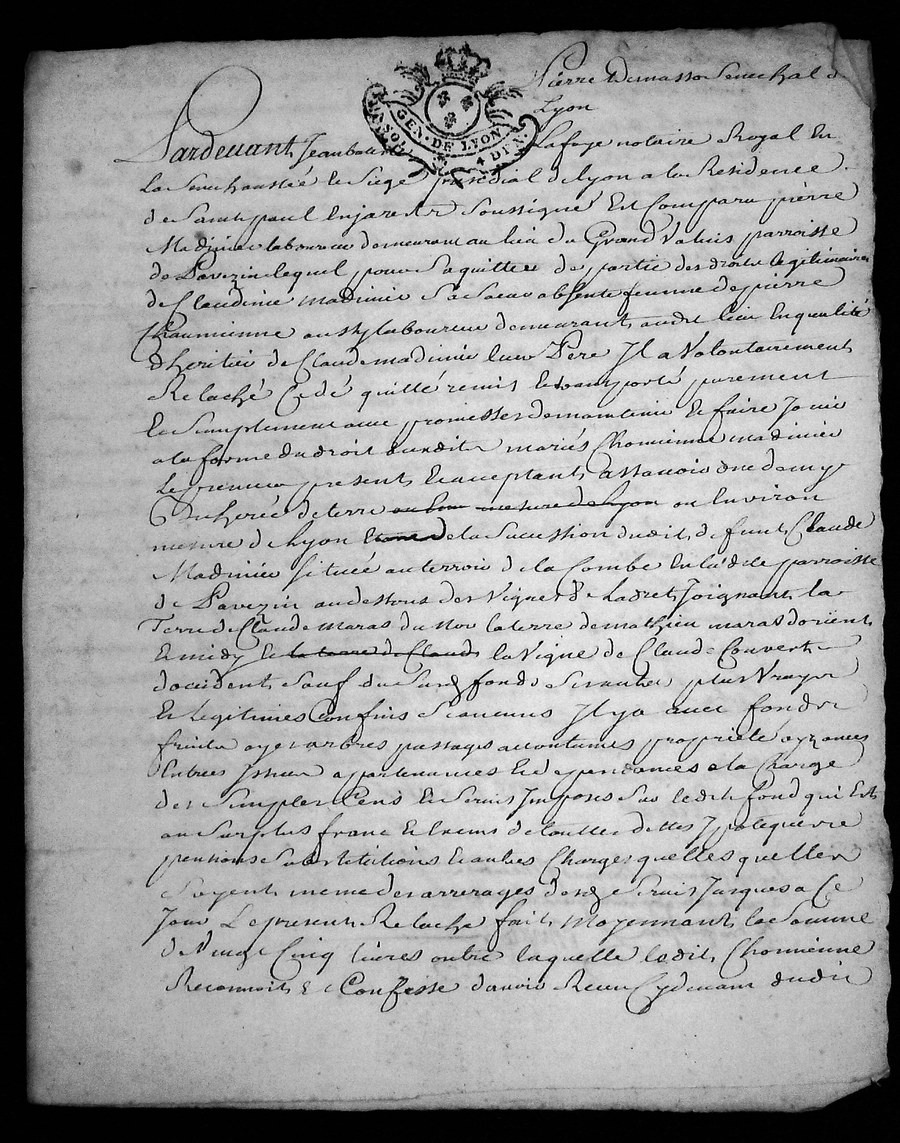 Pierre Demasso Senechal d
Lyon
GEN. DE LYON
4 DEN.
Pardevant Jean Lafage notaire Royal En
La Senechaussée et Siege presidial de Lyon a la Residence
de Saint paul Enjarest Soussigné Est Comparu pierre
Madinier laboureur demeurant au lieu du Grand Valuis parroisse
de Pavezin lequel pour Saquitter de partie des droits legitimaires
de Claudine madinier Sa Soeur absente femme de pierre
Chaumienne aussy laboureur demeurant audit lieu En qualité
dheritier de Claude madinier leur Pere Il a Volontairement
Relaché Cedé quitté remis et transporté purement
Et Simplement avec promesses de maintenir et faire Jouir
a la forme du droit auxdits mariés Chomienne madinier
Le premier present Et acceptant assavoir une demy
de terre ou Environ
mesure de Lyon de la Succession dudit defunt Claude
Madinier Située au terroir de la Combe En ladite parroisse
de Pavezin au dessous des Vignes de Ladret Joignant la
Terre de Claude maras du Nor la terre de mathieu maras dorient
Et midy et la terre de Claude la Vigne de Claude Couvert
doccident Sauf du Surplus fonds Ses autres plus Vrayes
Et Legitimes Confins Se aucuns Il y a avec fonds
fruits arbres passages accoutumés proprieté ayzances
Entrées Issues appartenances Et dependances a la Charge
des Simples Cens Et Servis Imposes Sur ledit fond qui Est
au Surplus franc Et Exems de touttes dettes Ypoteques
pentions Substitutions Et autres Charges quelles quelles
Soyent meme des arrerages desdits Servis Jusques a Ce
Jour Le present Relaché fait Moyennant la Somme
de Vingt Cinq livres outre laquelle ledit Chomienne
Reconnoit Et Confesse davoir Receu Cydevant dudit